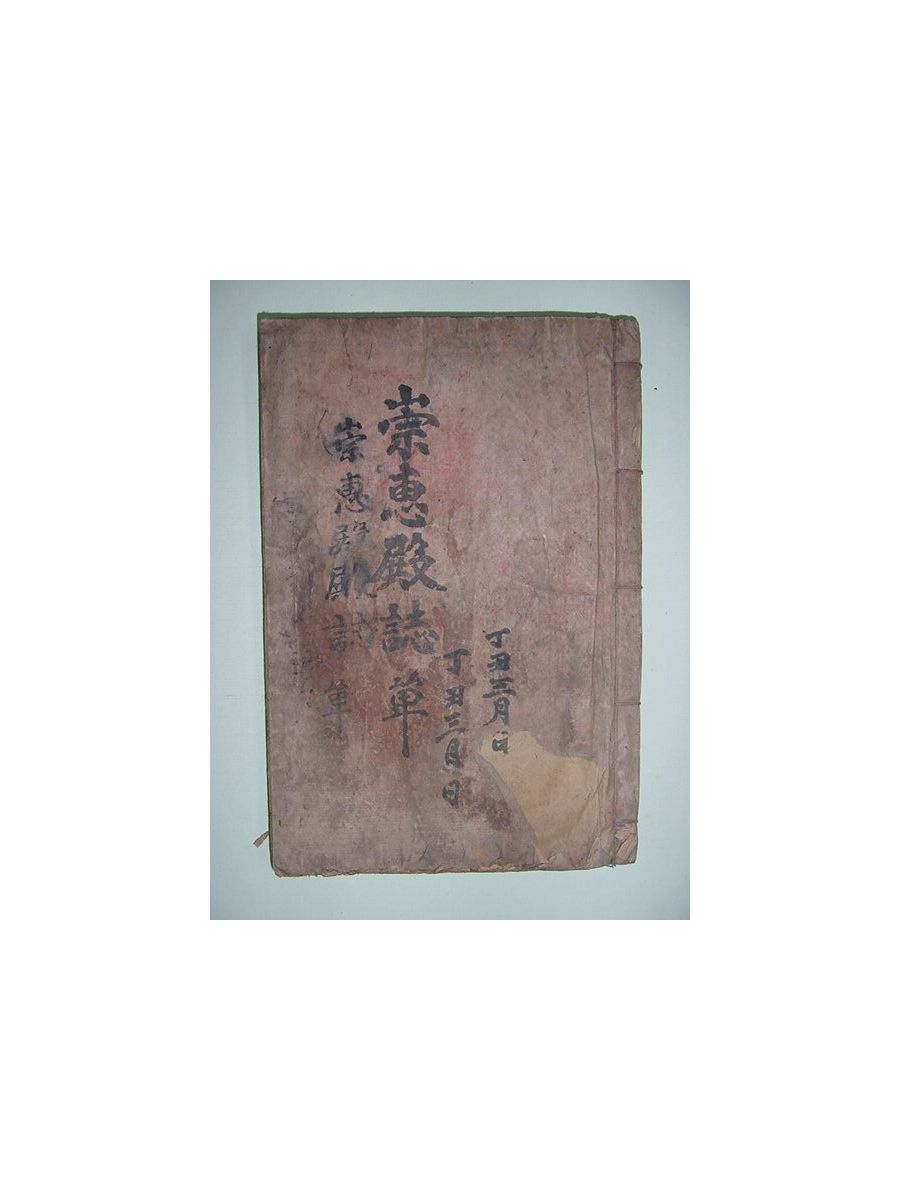 丁丑三月 日
丁丑三月 日
崇惠殿誌 單
崇惠殿殿誌 單